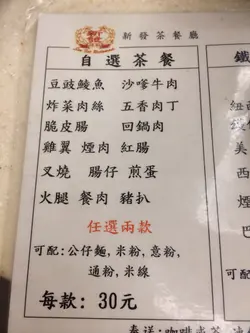 新發茶餐廳
自選茶餐
豆豉鯪魚 沙嗲牛肉
炸菜肉絲 五香肉丁
脆皮腸 回鍋肉
雞翼 煙肉 紅腸
叉燒 腸仔 煎蛋
火腿 餐肉 豬扒
任選兩款
可配:公仔麵,米粉,意粉,
通粉,米線
每款:30元
鐵
紐
美
煙
西
巴